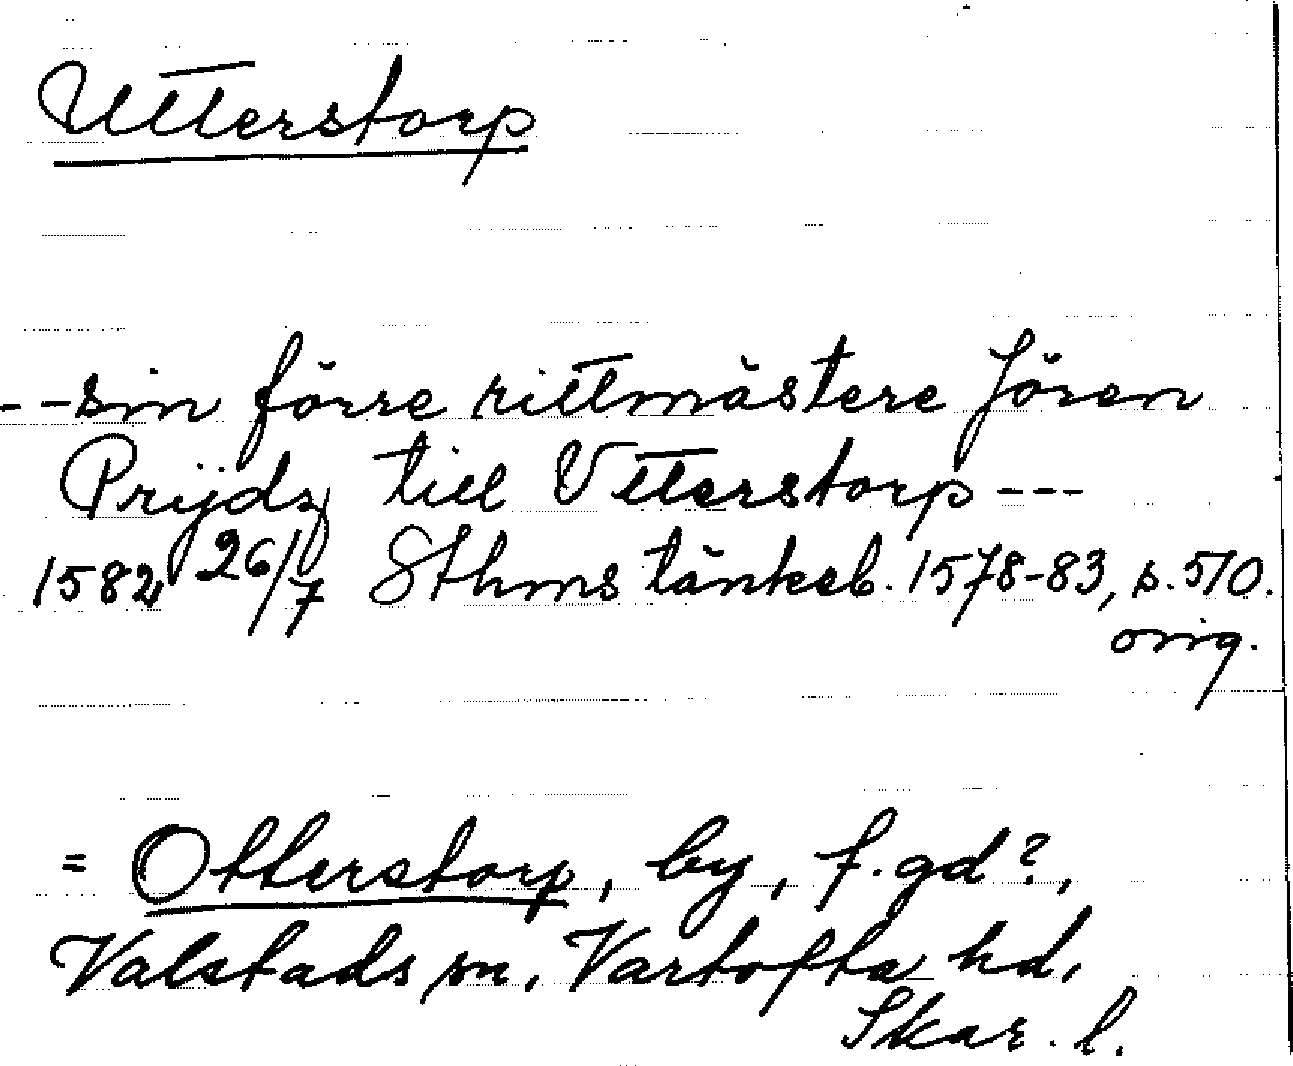 Utterstorp
--sin förre rittmästere Jören
Prÿdz till Vtterstorp ---
1582 26/7 Sthms tänkeb. 1578-83, s. 510.
orig.
= Otterstorp, by, f. gd?,
Valstads sn, Vartofta hd,
Skar. l.